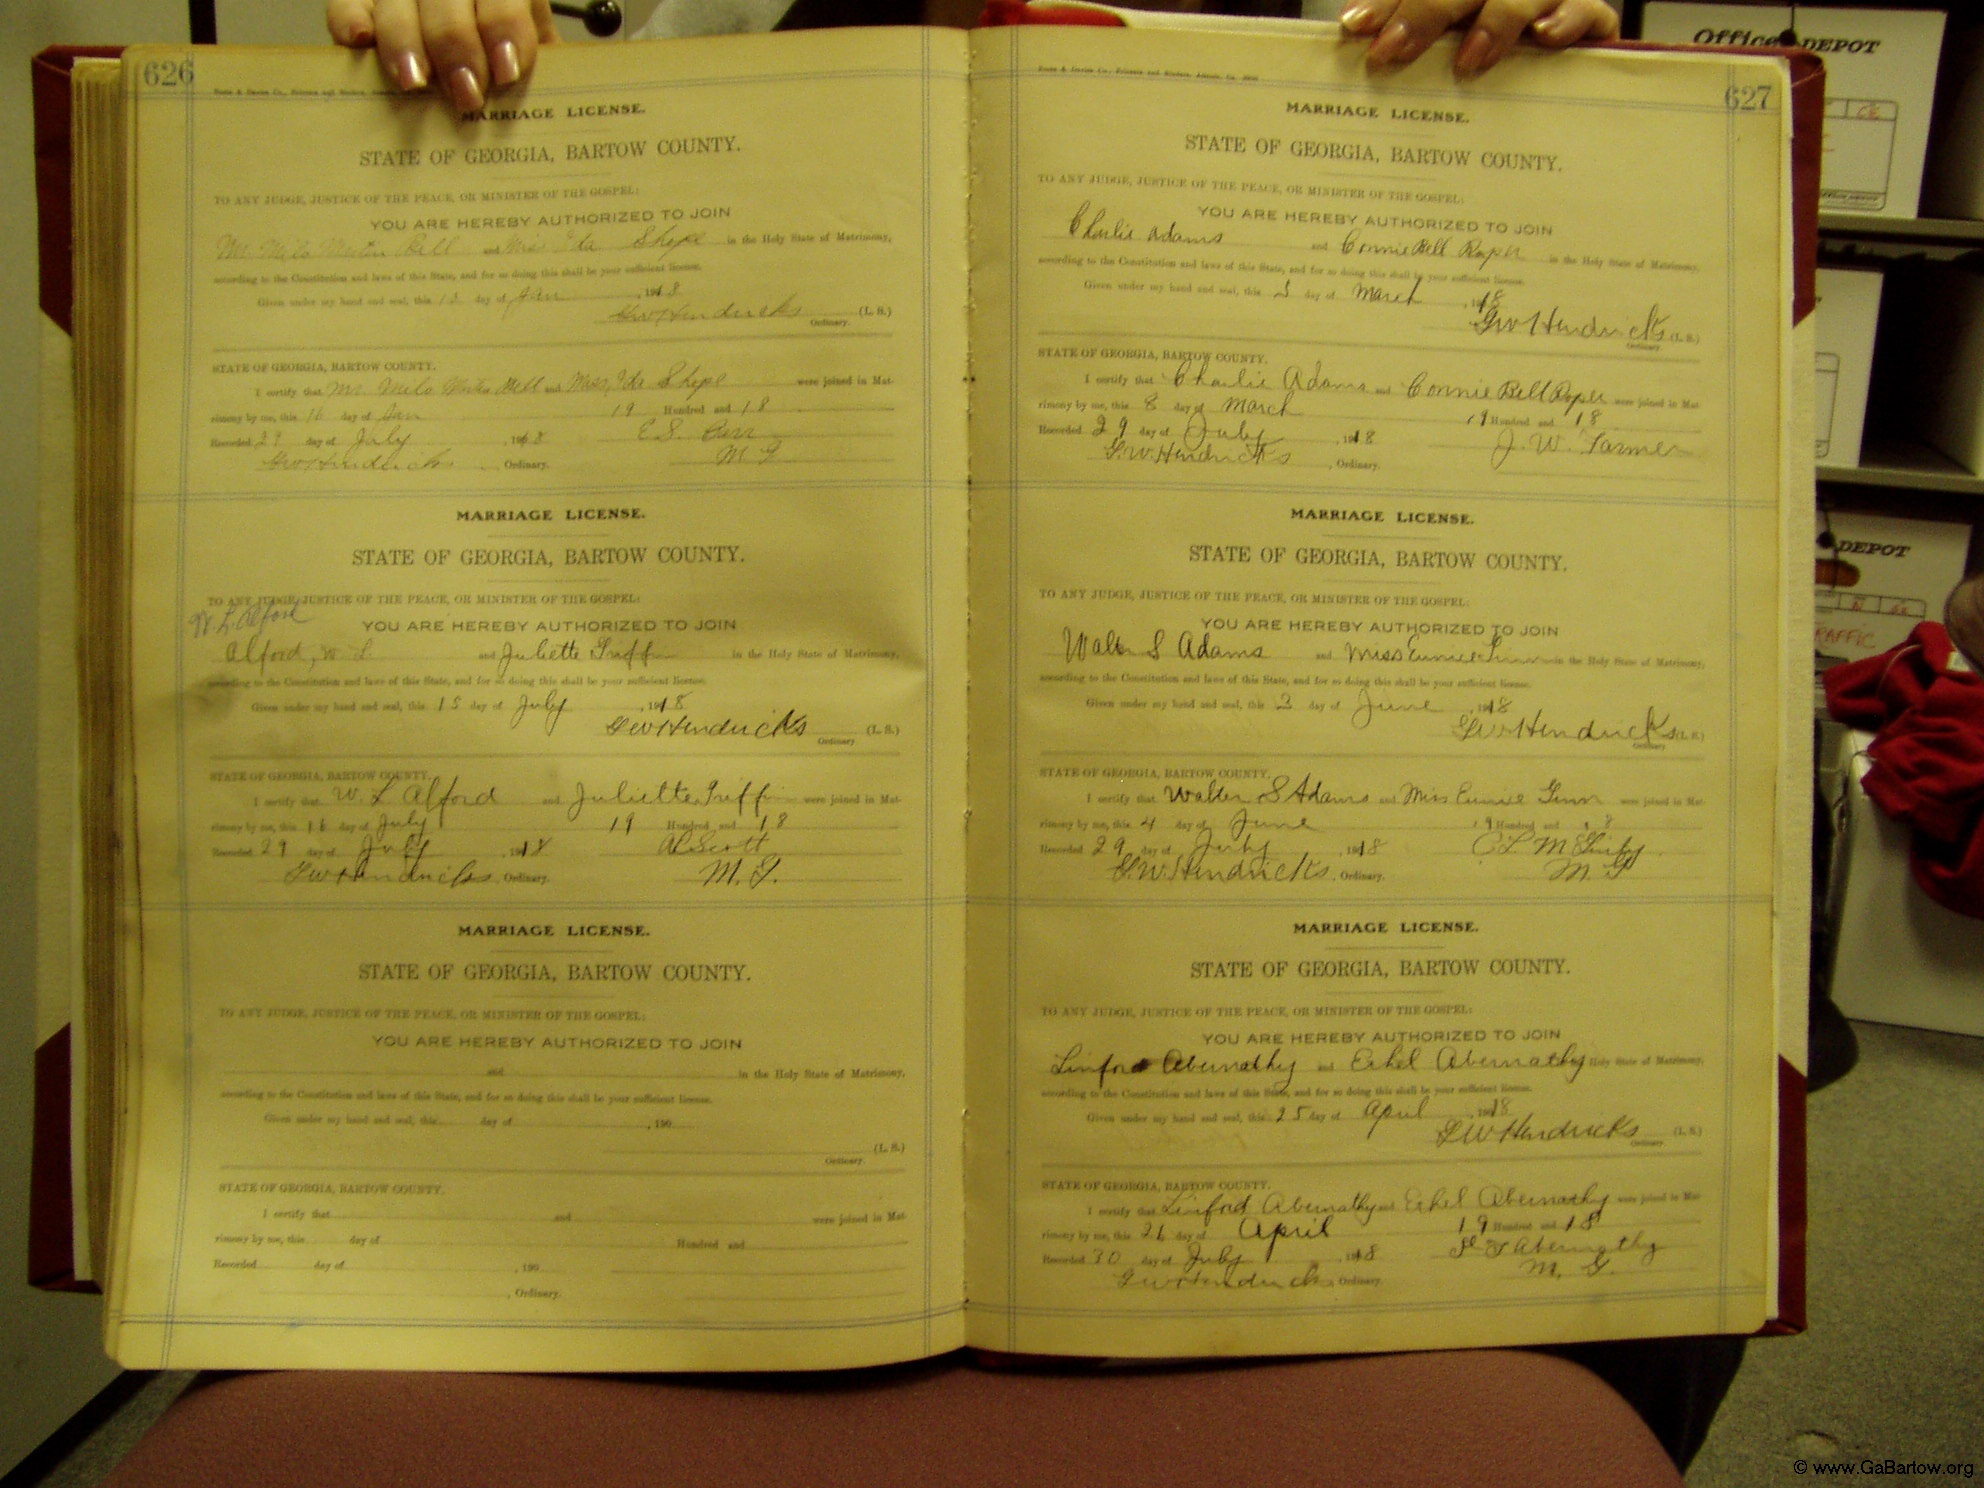 626
MARRIAGE LICENSE.
STATE OF GEORGIA, BARTOW COUNTY.
TO ANY JUDGE, JUSTICE OF THE PEACE, OR MINISTER OF THE GOSPEL:
YOU ARE HEREBY AUTHORIZED TO JOIN
Mr. Milo Bell and Miss Ida Shope in the Holy State of Matrimony,
according to the Constitution and laws of this State, and for so doing this shall be your sufficient license.
Given under my hand and seal, this day of Jan 1918
GW Hendricks (L. S.)
Ordinary.
STATE OF GEORGIA, BARTOW COUNTY.
I certify that Mr. Milo Bell and Miss Ida Shope were joined in Mat-
rimony by me, this 16 day of Jan 19 Hundred and 18
Recorded 29 day of July 1918 E.S.
GW Hendricks Ordinary. M G
MARRIAGE LICENSE.
STATE OF GEORGIA, BARTOW COUNTY.
TO ANY JUDGE, JUSTICE OF THE PEACE, OR MINISTER OF THE GOSPEL:
W. L. Alford
YOU ARE HEREBY AUTHORIZED TO JOIN
Alford, W L and Juliette Griffin in the Holy State of Matrimony,
according to the Constitution and laws of this State, and for so doing this shall be your sufficient license.
Given under my hand and seal, this 15 day of July 1918
GW Hendricks (L. S.)
Ordinary
STATE OF GEORGIA, BARTOW COUNTY.
I certify that W. L Alford and Juliette Griffin were joined in Mat-
rimony by me, this 16 day of July 19 Hundred and 18
Recorded 29 day of July 1918 Scott
GW Hendricks Ordinary. M. G.
MARRIAGE LICENSE.
STATE OF GEORGIA, BARTOW COUNTY.
TO ANY JUDGE, JUSTICE OF THE PEACE, OR MINISTER OF THE GOSPEL:
YOU ARE HEREBY AUTHORIZED TO JOIN
and in the Holy State of Matrimony,
according to the Constitution and laws of this State, and for so doing this shall be your sufficient license.
Given under my hand and seal, this day of , 190
(L. S.)
Ordinary.
STATE OF GEORGIA, BARTOW COUNTY.
I certify that and were joined in Mat-
rimony by me, this day of Hundred and
Recorded day of , 190
, Ordinary.
627
MARRIAGE LICENSE.
STATE OF GEORGIA, BARTOW COUNTY.
TO ANY JUDGE, JUSTICE OF THE PEACE, OR MINISTER OF THE GOSPEL:
YOU ARE HEREBY AUTHORIZED TO JOIN
Charlie Adams and Connie Bell Roper in the Holy State of Matrimony,
according to the Constitution and laws of this State, and for so doing this shall be your sufficient license.
Given under my hand and seal, this 5 day of March 1918
GW Hendricks (L. S.)
Ordinary.
STATE OF GEORGIA, BARTOW COUNTY.
I certify that Charlie Adams and Connie Bell Roper were joined in Mat-
rimony by me, this 8 day of March 19 Hundred and 18
Recorded 29 day of July 1918 J. W. Farmer
G.W. Hendricks , Ordinary.
MARRIAGE LICENSE.
STATE OF GEORGIA, BARTOW COUNTY.
TO ANY JUDGE, JUSTICE OF THE PEACE, OR MINISTER OF THE GOSPEL:
YOU ARE HEREBY AUTHORIZED TO JOIN
Walter S Adams and Miss Eunice in the Holy State of Matrimony,
according to the Constitution and laws of this State, and for so doing this shall be your sufficient license.
Given under my hand and seal, this 3 day of June 1918
GW Hendricks (L. S.)
Ordinary
STATE OF GEORGIA, BARTOW COUNTY.
I certify that Walter S Adams and Miss Eunice were joined in Mat-
rimony by me, this 4 day of June 19 Hundred and 18
Recorded 29 day of July 1918
G.W. Hendricks Ordinary. M. G
MARRIAGE LICENSE.
STATE OF GEORGIA, BARTOW COUNTY.
TO ANY JUDGE, JUSTICE OF THE PEACE, OR MINISTER OF THE GOSPEL:
YOU ARE HEREBY AUTHORIZED TO JOIN
Linford Abernathy and Ethel Abernathy Holy State of Matrimony,
according to the Constitution and laws of this State, and for so doing this shall be your sufficient license.
Given under my hand and seal, this 25 day of April 1918
GW Hendricks (L. S.)
Ordinary
STATE OF GEORGIA, BARTOW COUNTY.
I certify that Linford Abernathy and Ethel Abernathy were joined in Mat-
rimony by me, this 26 day of April 19 Hundred and 18
Recorded 30 day of July 1918 Abernathy
GW Hendricks, Ordinary. M. G.
Office DEPOT
DEPOT
© www.GaBartow.org